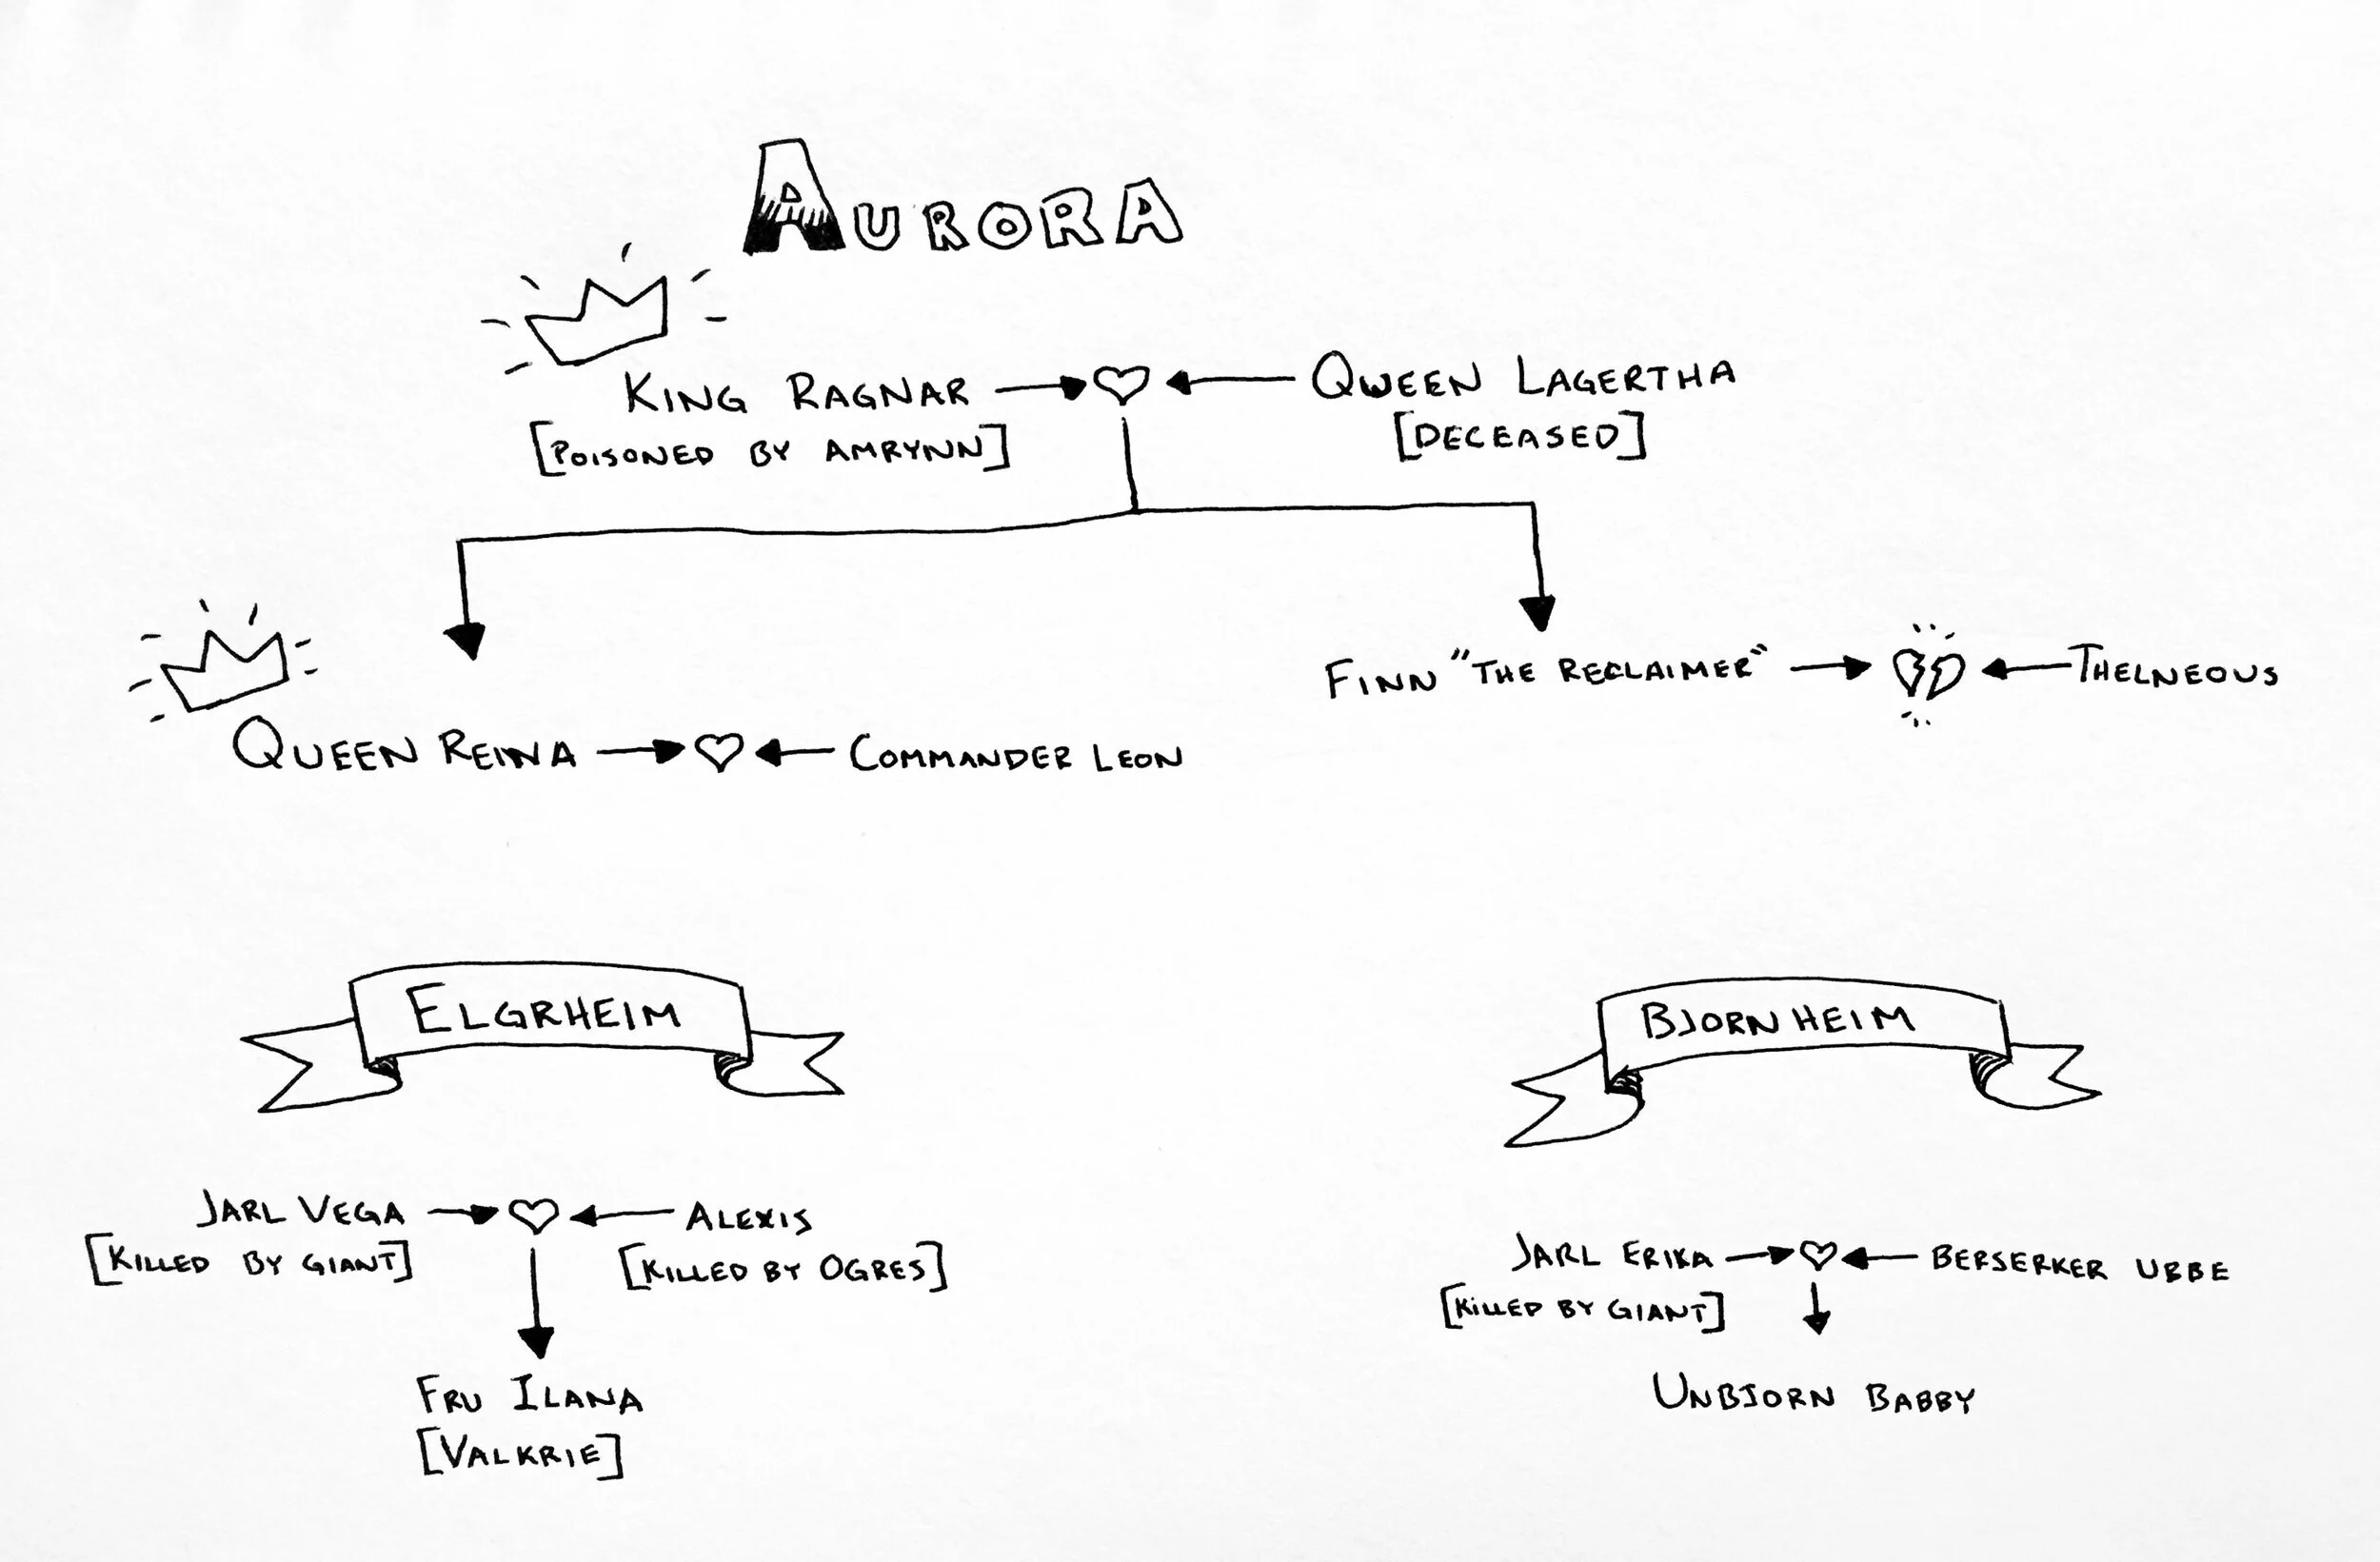 AURORA
KING RAGNAR
QWEEN LAGERTHA
[POISONED BY AMRYNN]
[DECEASED]
FINN "THE RECLAIMER"
THELNEOUS
QUEEN REINA
COMMANDER LEON
ELGRHEIM
BJORNHEIM
JARL VEGA
ALEXIS
[KILLED BY GIANT]
[KILLED BY OGRES]
JARL ERIKA
BERSERKER UBBE
[KILLED BY GIANT]
FRU ILANA
UNBJORN BABBY
[VALKRIE]